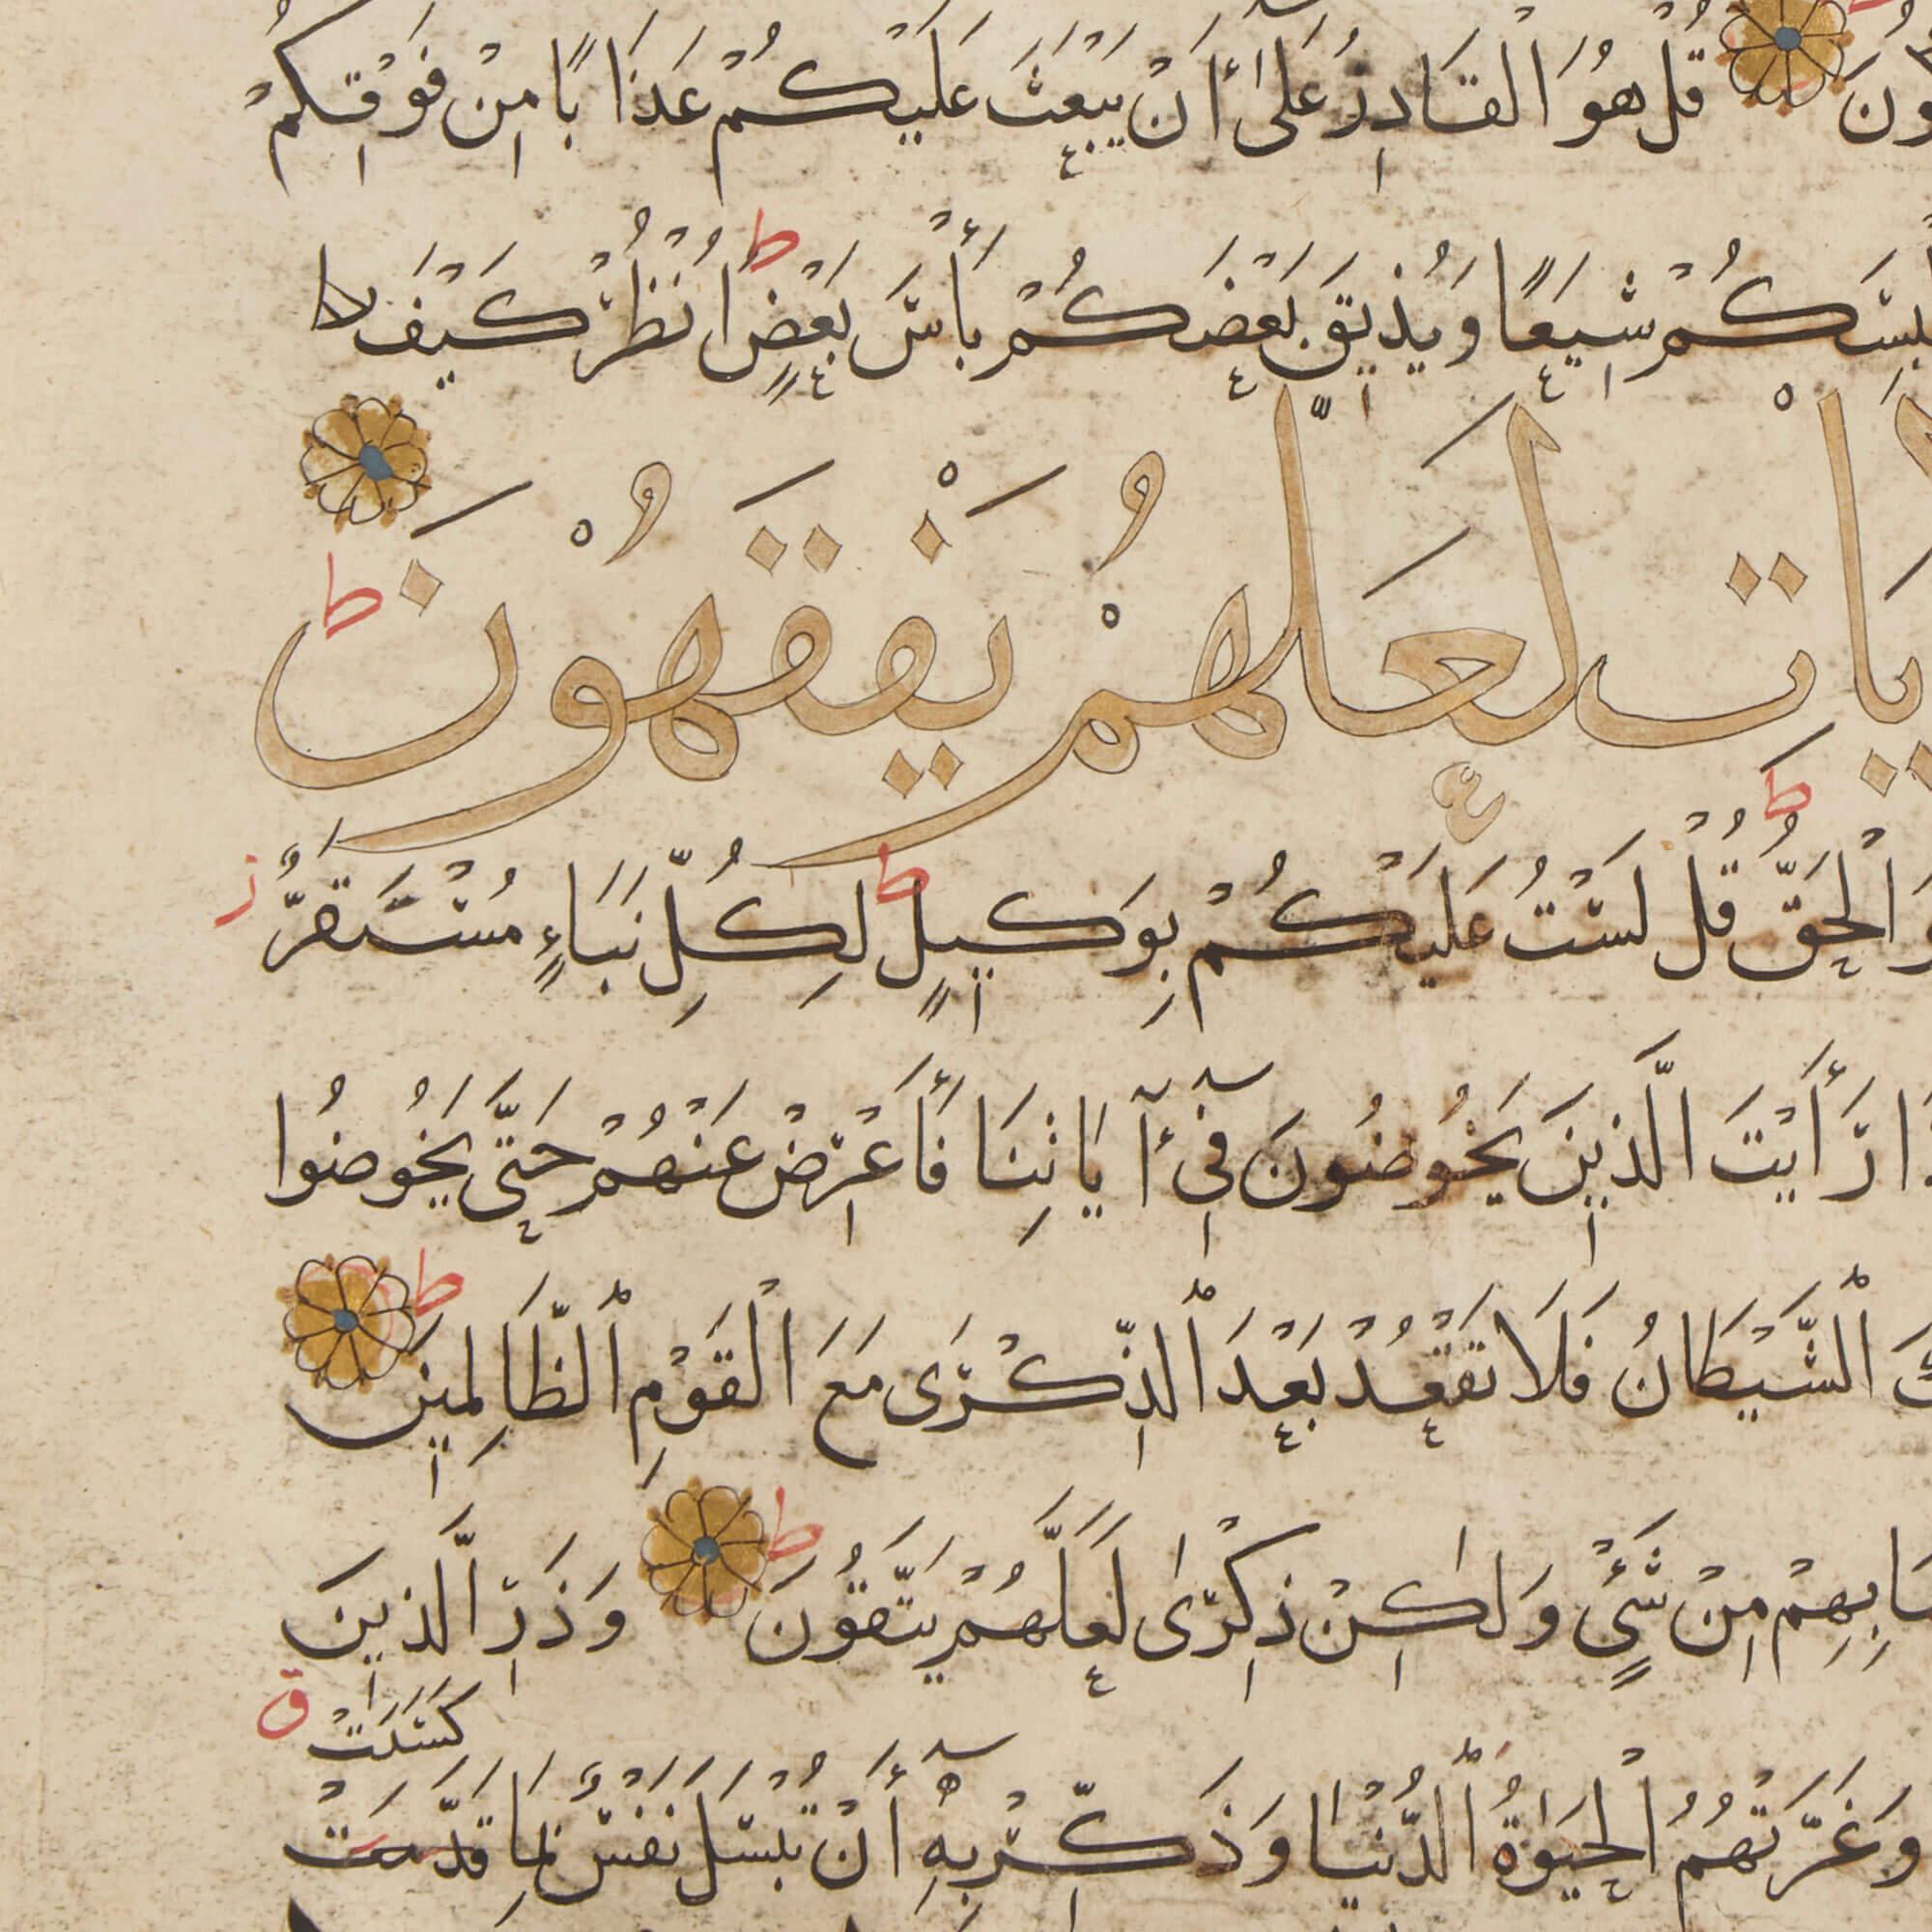 ونَ قُلْ هُوَ الْقَادِرُ عَلَىٰ أَنْ يَبْعَثَ عَلَيْكُمْ عَذَابًا مِنْ فَوْقِكُمْ
يَلْبِسَكُمْ شِيَعًا وَيُذِيقَ بَعْضَكُمْ بَأْسَ بَعْضٍ ط انْظُرْ كَيْفَ لا
يَاتِ لَعَلَّهُمْ يَفْقَهُوْنَ ط
وَ الْحَقُّ ط قُلْ لَسْتُ عَلَيْكُمْ بِوَكِيلٍ ط لِكُلِّ نَبَاءٍ مُسْتَقَرٌّ ز
ا رَأَيْتَ الَّذِينَ يَخُوضُونَ فِىٓ آيَاتِنَا فَأَعْرِضْ عَنْهُمْ حَتَّى يَخُوضُوا
كَ الشَّيْطَانُ فَلَا تَقْعُدْ بَعْدَ الذِّكْرَى مَعَ الْقَوْمِ الظَّالِمِينَ ط
سَابِهِمْ مِنْ شَىْءٍ وَلٰكِنْ ذِكْرَىٰ لَعَلَّهُمْ يَتَّقُونَ ط وَذَرِ الَّذِينَ
كَسَبَتْ ق
وَغَرَّتْهُمُ الْحَيَوٰةُ الدُّنْيَا وَذَكِّرْ بِهِٓ أَنْ تُبْسَلَ نَفْسٌ بِمَا قَدَّمَتْ